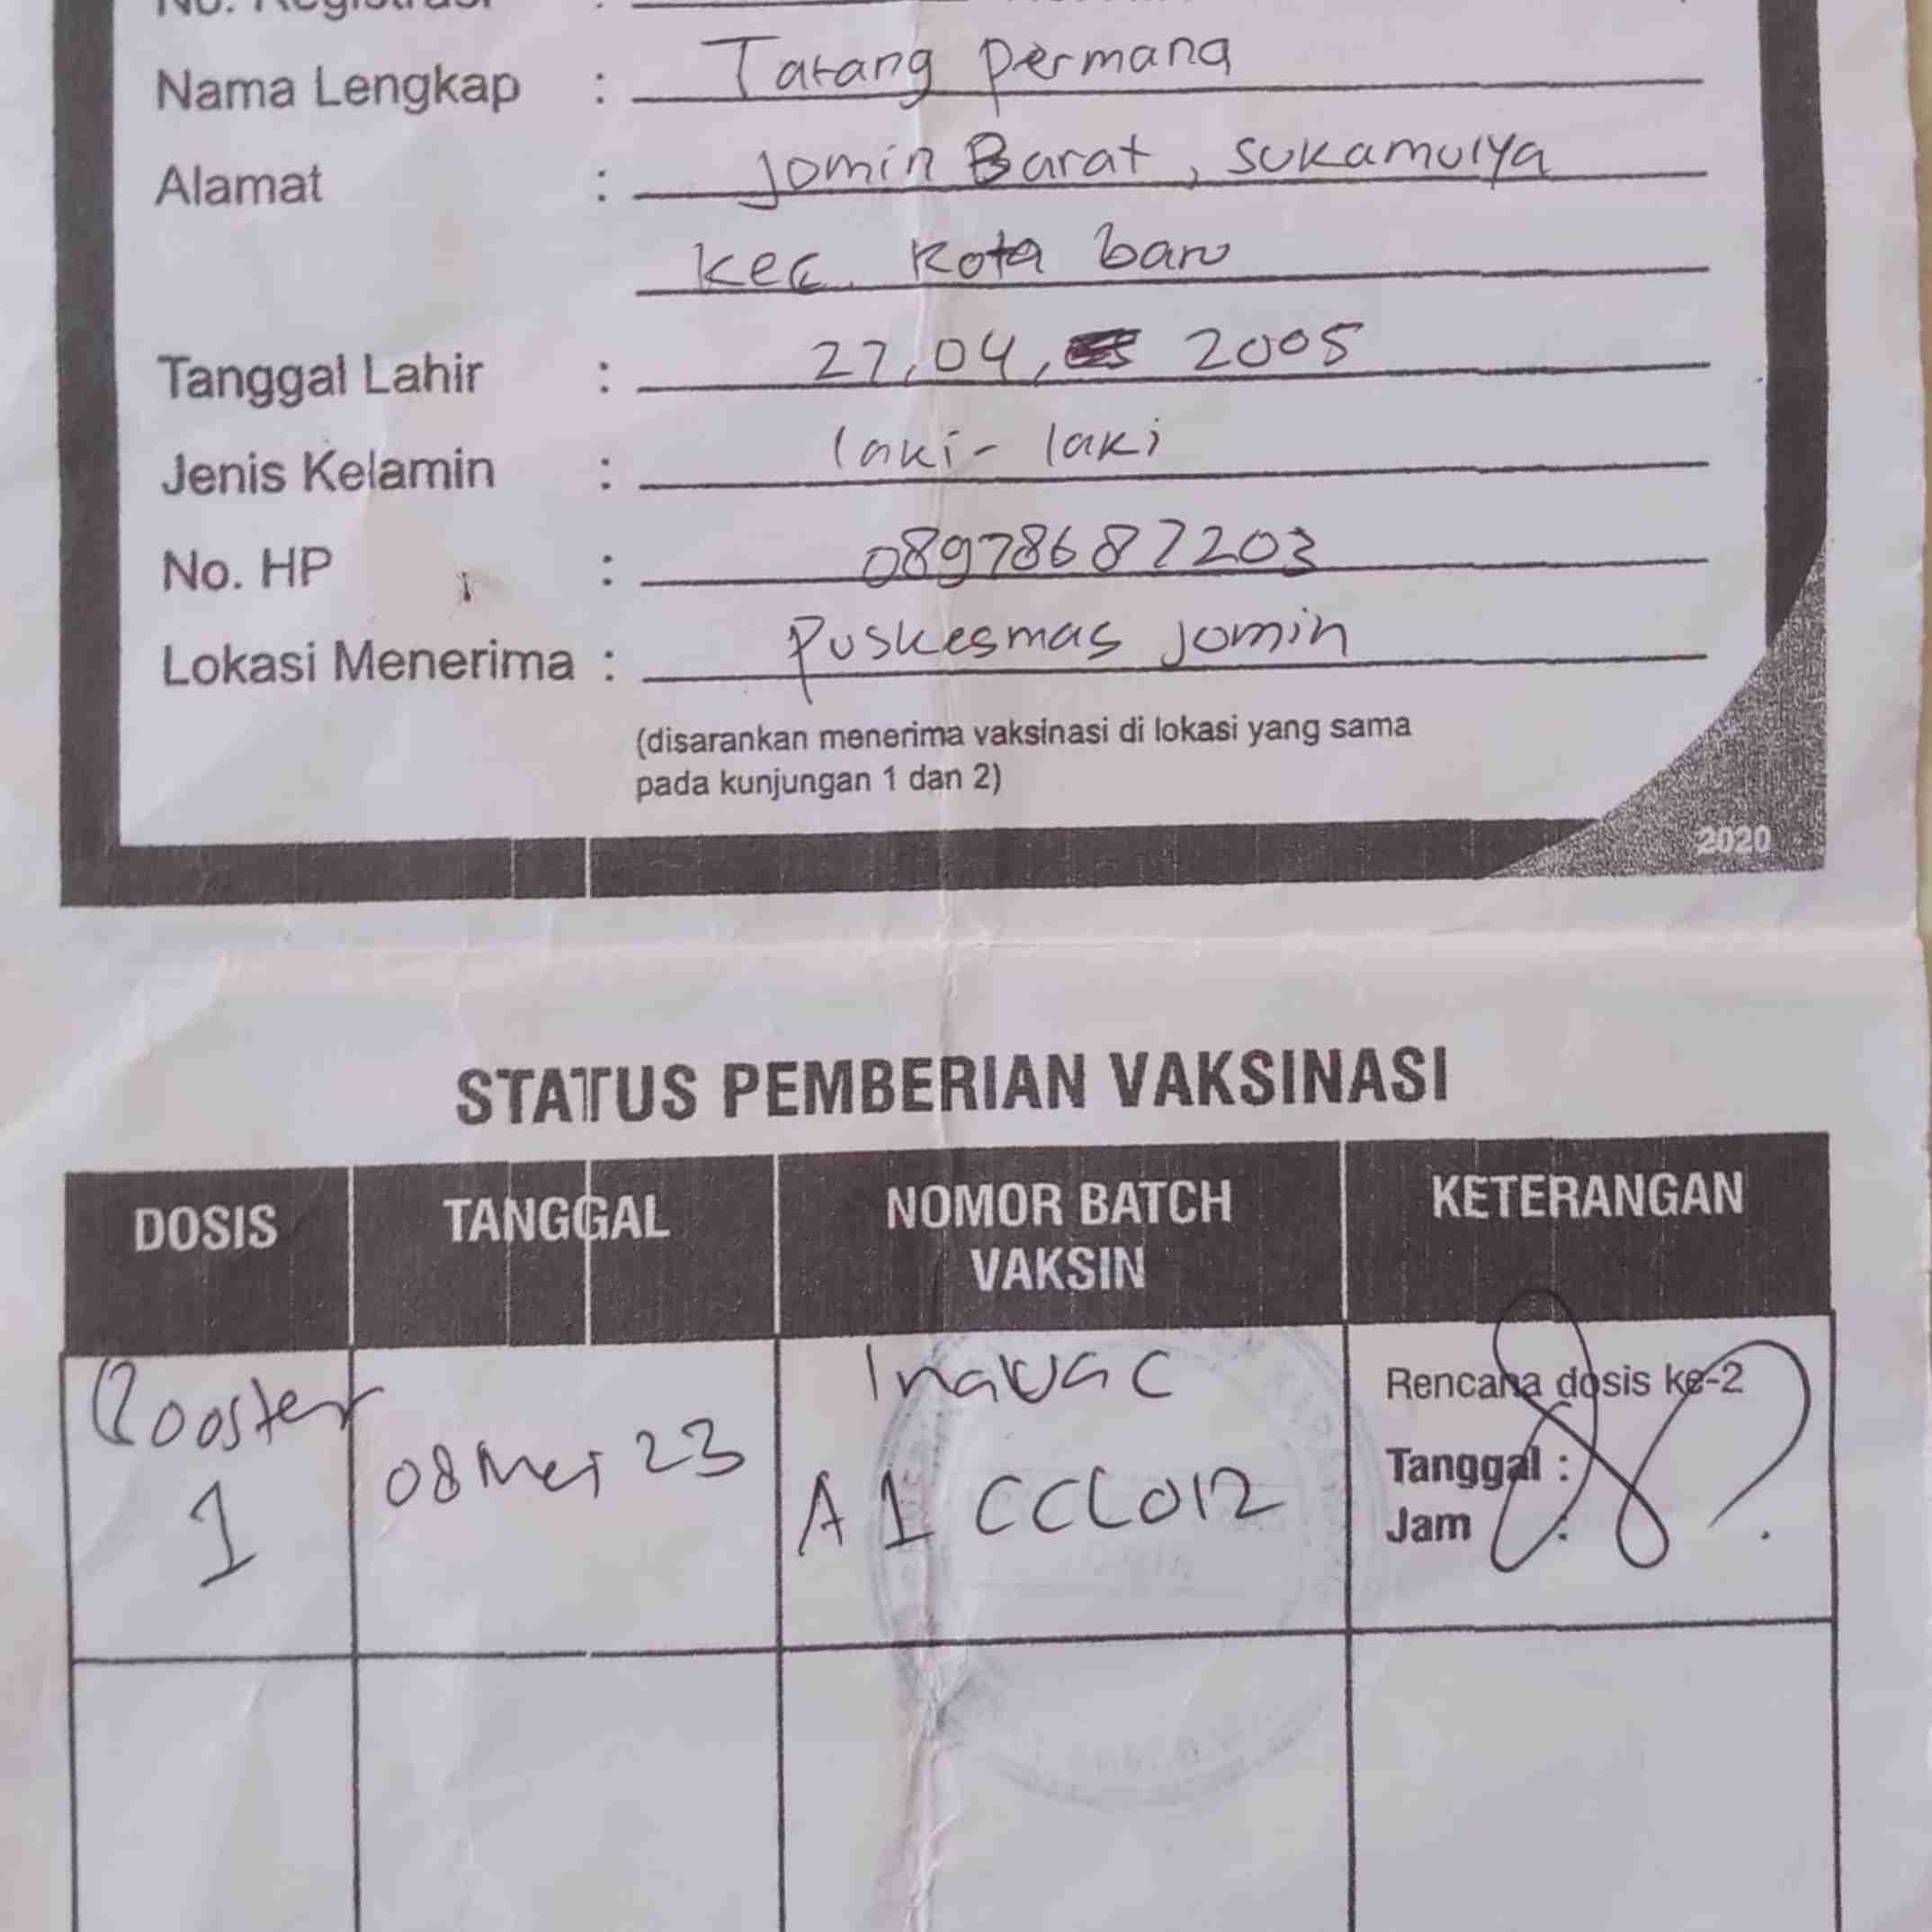 No. Registrasi :
Nama Lengkap : Tatang permana
Alamat : Jomin Barat, sukamulya
kec. Kota baru
Tanggal Lahir : 27,04, 2005
Jenis Kelamin : laki-laki
No. HP : 08978687203
Lokasi Menerima : Puskesmas Jomin
(disarankan menerima vaksinasi di lokasi yang sama
pada kunjungan 1 dan 2)
2020
STATUS PEMBERIAN VAKSINASI
DOSIS TANGGAL NOMOR BATCH VAKSIN KETERANGAN
Booster 1
08 Mei 23
Inavac
A1 CCL012
Rencana dosis ke-2
Tanggal :
Jam :